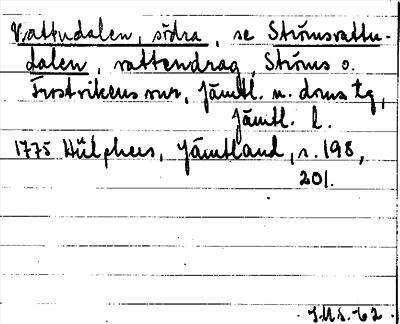 Vattudalen, södra, se Strömsvattu-
dalen, vattendrag, Ströms o.
Frostvikens snr, Jämtl. n. doms tg,
Jämtl. l.
1775 Hülphers, Jämtland, s. 198,
201.